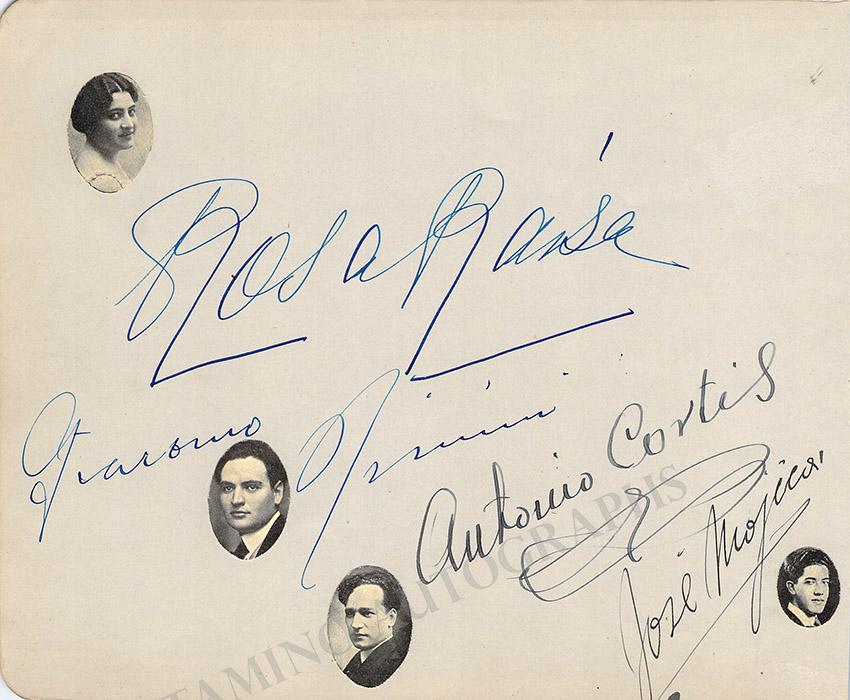 Rosa Raisa
Giacomo Rimini
Antonio Cortis
José Mojica
TAMINO AUTOGRAPHS